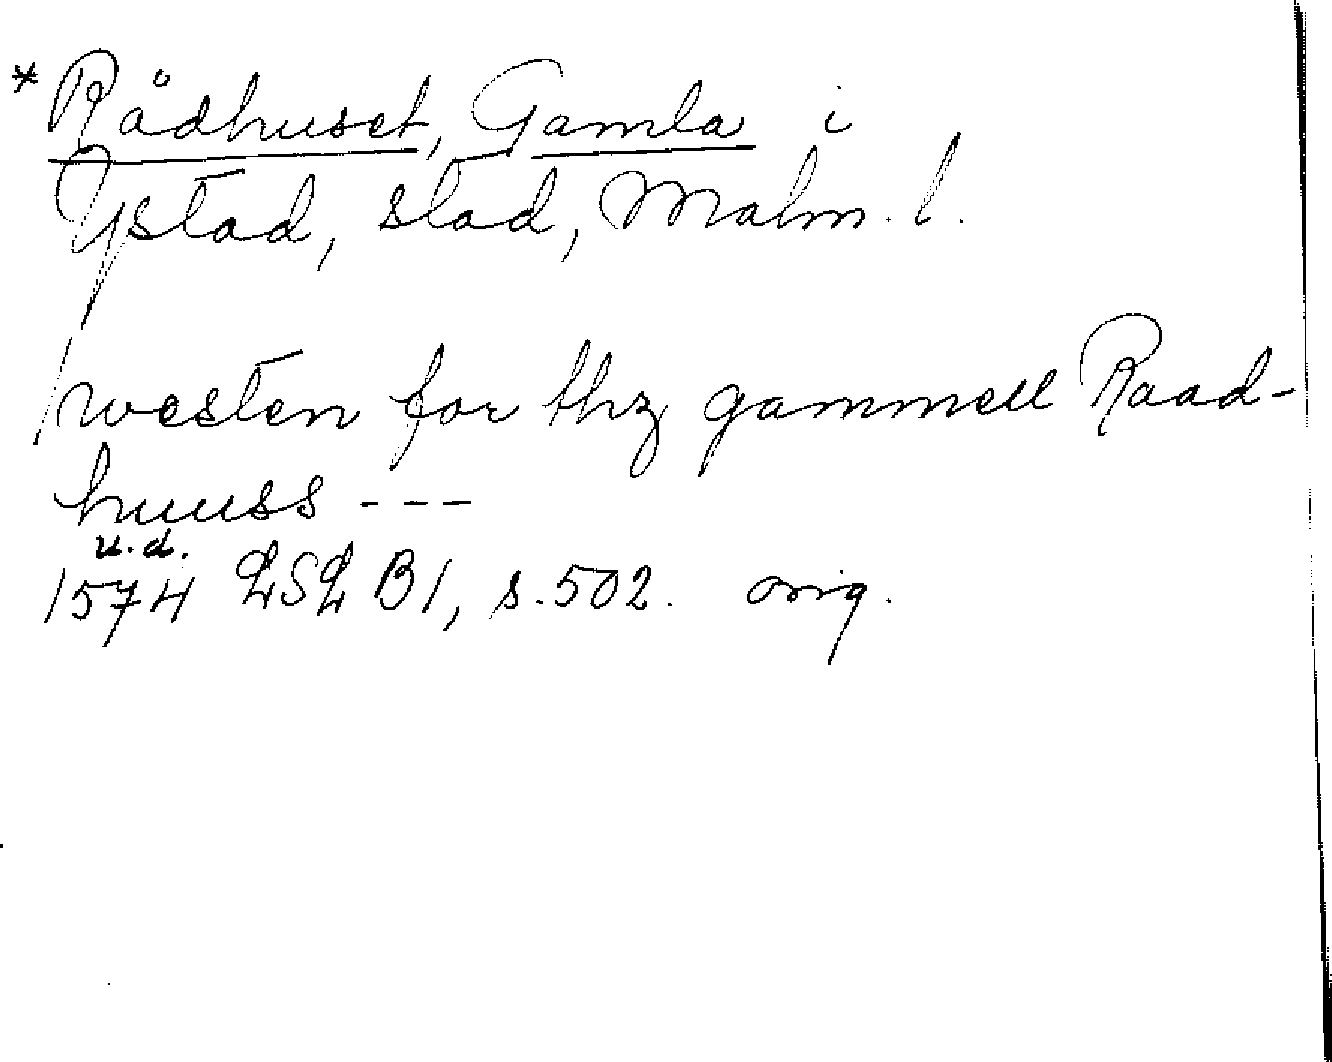 * Rådhuset, Gamla i
Ystad, stad, Malm. l.
westen for thz gammell Raad-
huuss ---
u.d.
1574 LSL B1, s. 502. orig.